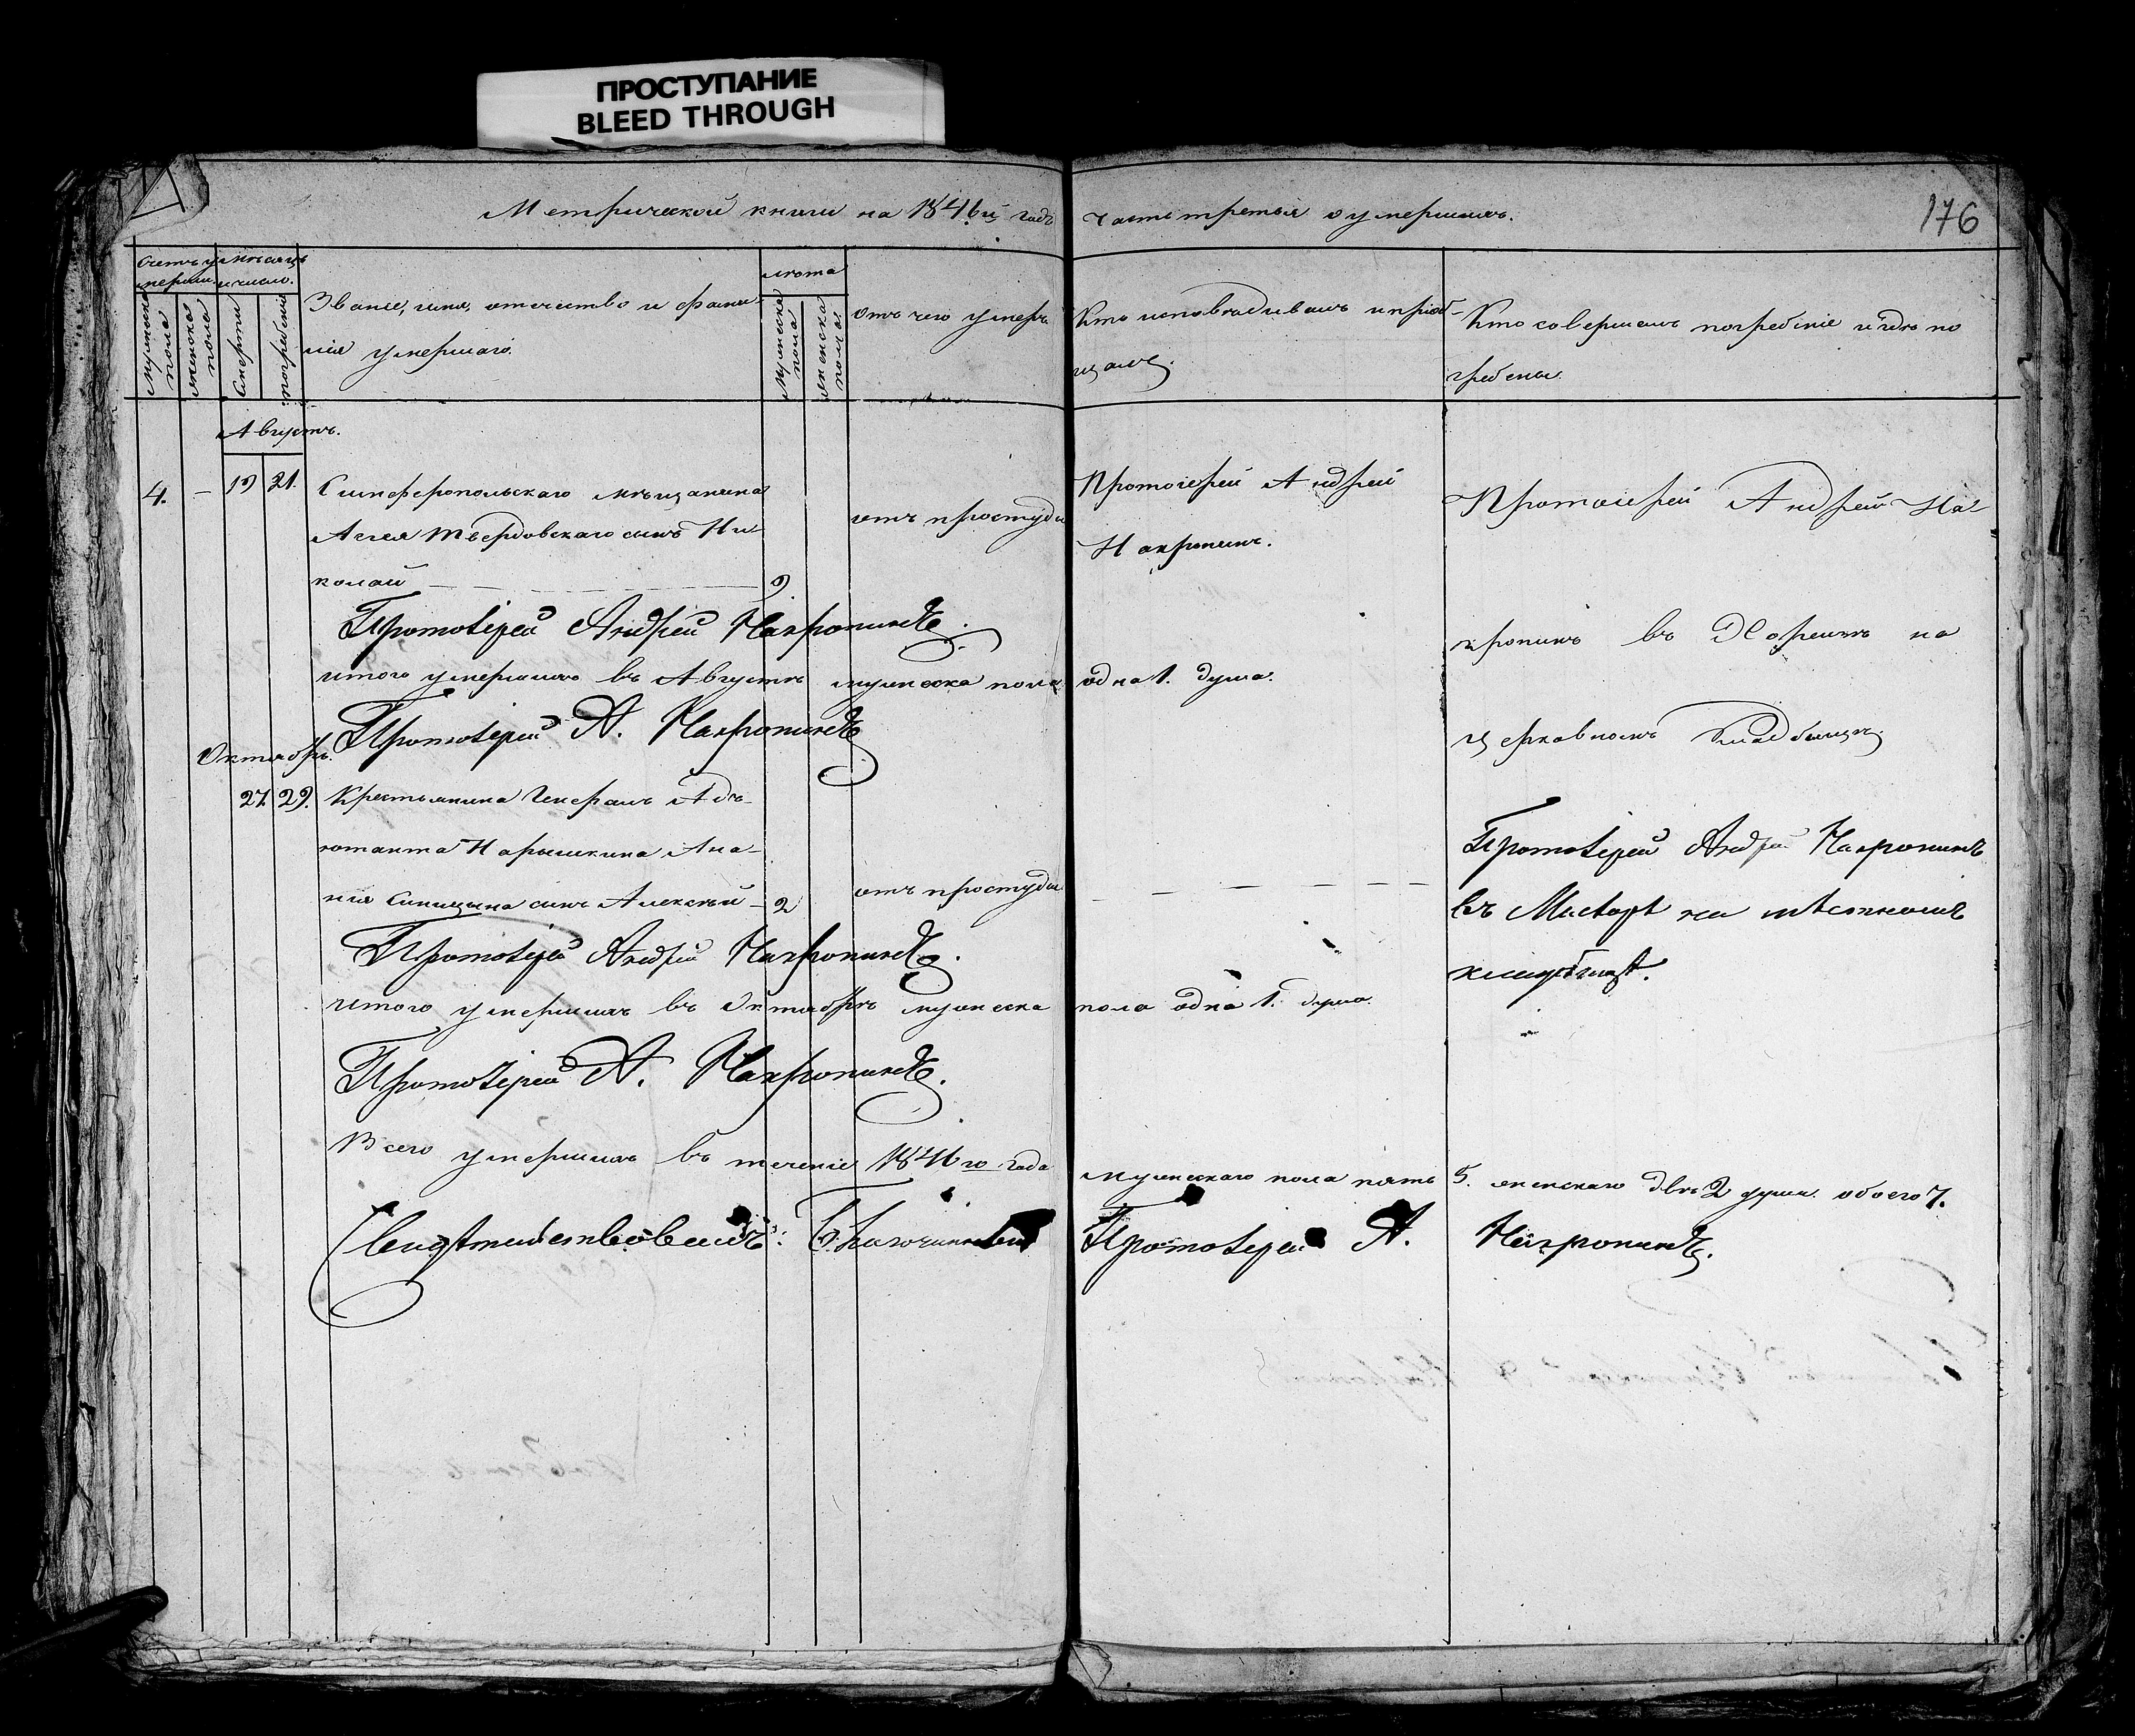 ПРОСТУПАНИЕ
BLEED THROUGH
Метрической книги на 1846й годъ часть третья о умершихъ.
176
Счетъ у
мерши.
Мѣсяцъ
и число.
мужеска
пола
женска
пола
смерти
погребенія
Званіе, имя, отечество и фами-
лія умершаго.
лѣта
мужеска
пола
женска
пола
отъ чего умеръ
Кто исповѣдывалъ и пріоб-
щалъ.
Кто совершалъ погребеніе и гдѣ по
гребены.
Августъ.
4. - 19 21. Симферопольскаго мѣщанина
Твердовскаго сынъ Ни-
колай 9.
отъ простуды
Протоіерей Андрей
Нахропинъ.
Протоіерей Андрей На-
хропинъ въ на
церковномъ кладбищѣ.
Протоіерей Андрей Нахропинъ.
итого умершихъ въ Августѣ мужеска пола одна 1. душа.
Протоіерей А. Нахропинъ
Октябрь.
27. 29. Крестьянина Генералъ Адъ-
ютанта Нарышкина Ана-
нія Синицына сынъ Алексѣй - 2
отъ простуды
Протоіерей Андрей Нахропинъ
въ на мѣстномъ
кладбищѣ.
Протоіерей Андрей Нахропинъ.
итого умершихъ въ Октябрѣ мужеска пола одна 1. душа.
Протоіерей А. Нахропинъ.
Всего умершихъ въ теченіе 1846го года мужескаго пола пять 5. женскаго двѣ 2 души. обоего 7.
Свидѣтельствовалъ: Благочинный Протоіерей А. Нахропинъ.